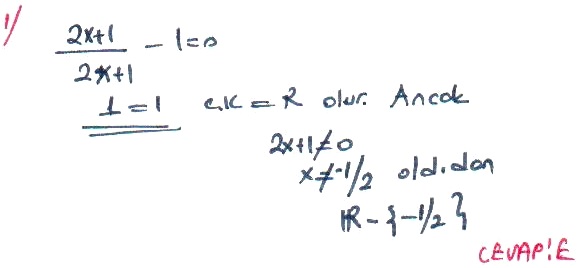 1/
2x+1
2x+1
- 1=0
1=1 Ç.K = R olur. Ancak
2x+1≠0
x≠-1/2 old.dan
IR-{-1/2}
CEVAP:E